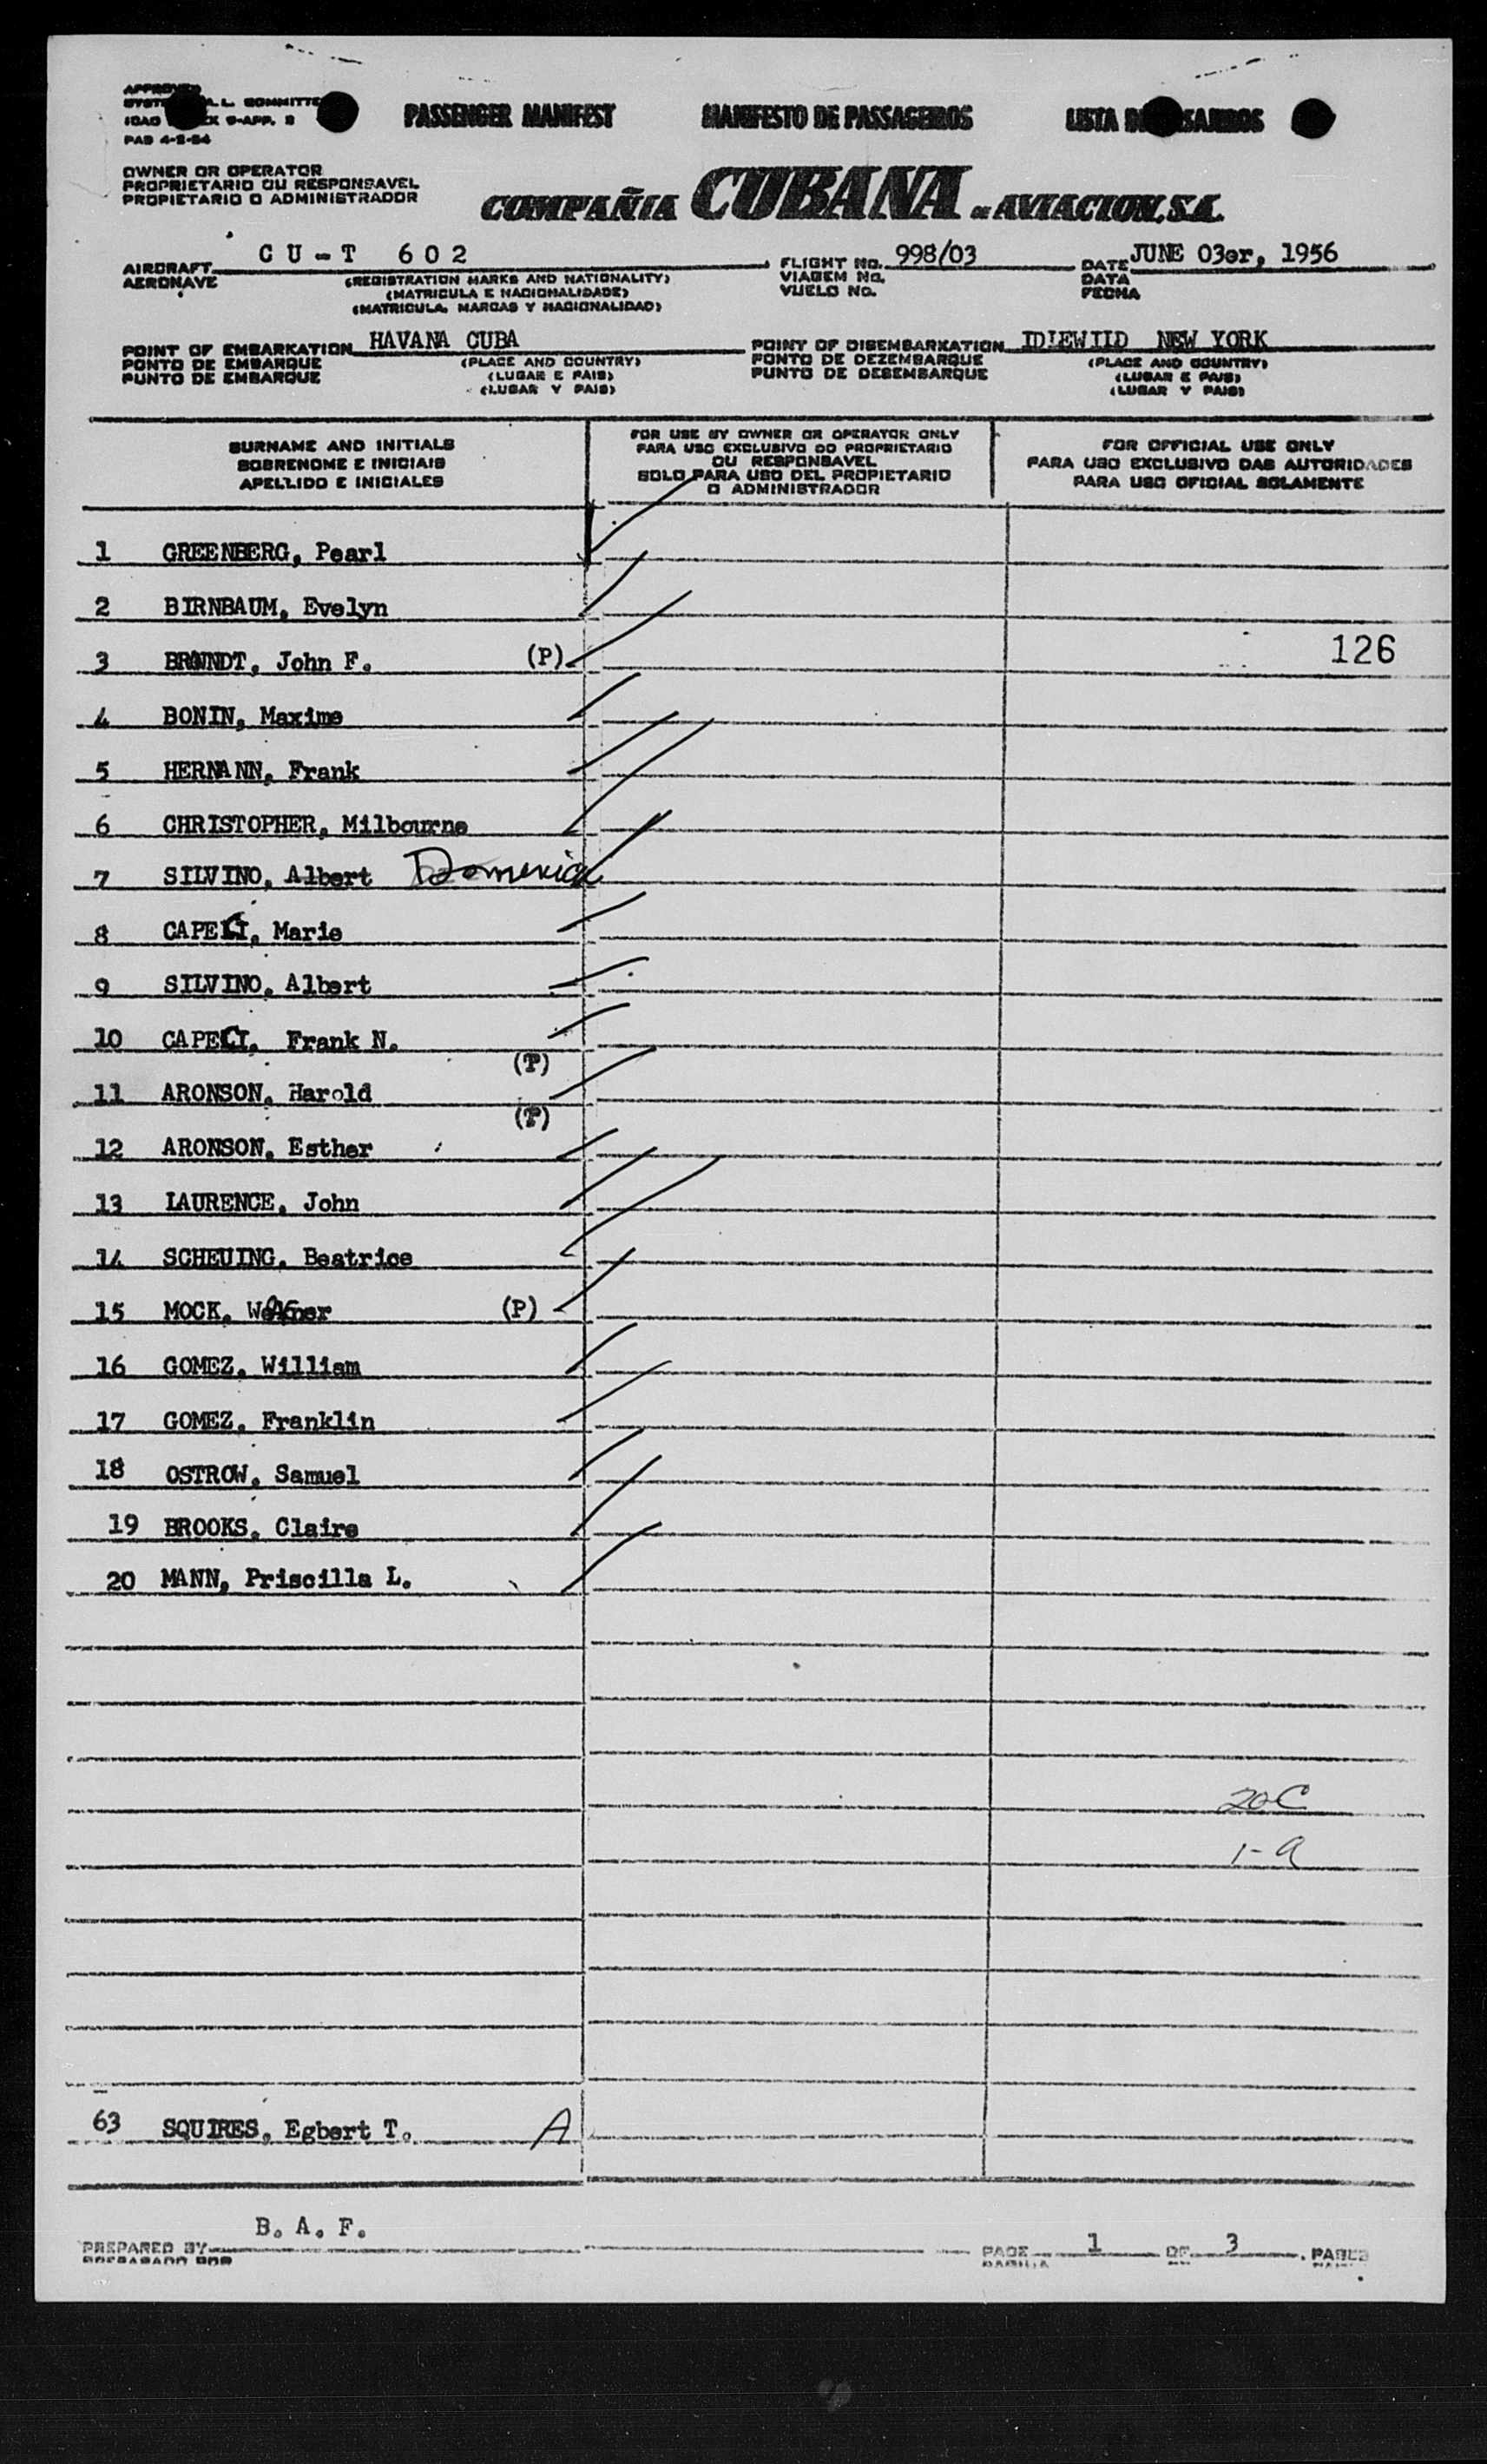 APPROVED
COMMITTE
9-APP. 2
PAB 4-2-54
PASSENGER MANIFEST
MANIFESTO DE PASSAGEIROS
LISTA
OWNER OR OPERATOR
PROPRIETARIO OU RESPONSAVEL
PROPIETARIO O ADMINISTRADOR
COMPAÑIA CUBANA DE AVIACION, S.A.
AIRCRAFT CU-T 602
AERONAVE
(REGISTRATION MARKS AND NATIONALITY)
(MATRICULA E NACIONALIDADE)
(MATRICULA, MARCAS Y NACIONALIDAD)
FLIGHT No. 998/03
VIAGEM No.
VUELO No.
DATE JUNE 03er, 1956
DATA
FECHA
POINT OF EMBARKATION HAVANA CUBA
PONTO DE EMBARQUE
PUNTO DE EMBARQUE
(PLACE AND COUNTRY)
(LUGAR E PAIS)
(LUGAR Y PAIS)
POINT OF DISEMBARKATION IDLEWILD NEW YORK
PONTO DE DEZEMBARQUE
PUNTO DE DESEMBARQUE
(PLACE AND COUNTRY)
(LUGAR E PAIS)
(LUGAR Y PAIS)
SURNAME AND INITIALS
SOBRENOME E INICIAIS
APELLIDO E INICIALES
FOR USE BY OWNER OR OPERATOR ONLY
PARA USO EXCLUSIVO DO PROPRIETARIO
OU RESPONSAVEL
SOLO PARA USO DEL PROPIETARIO
O ADMINISTRADOR
FOR OFFICIAL USE ONLY
PARA USO EXCLUSIVO DAS AUTORIDADES
PARA USO OFICIAL SOLAMENTE
1 GREENBERG, Pearl
2 BIRNBAUM, Evelyn
3 John F. (P)
126
4 BONIN, Maxime
5 HERMANN, Frank
6 CHRISTOPHER, Milbourne
7 SILVINO, Albert Domenick
8 Marie
9 SILVINO, Albert
10 Frank N.
(P)
11 ARONSON, Harold
(P)
12 ARONSON, Esther
13 LAURENCE, John
14 SCHEUING, Beatrice
15 MOCK, (P)
16 GOMEZ, William
17 GOMEZ, Franklin
18 OSTROW, Samuel
19 BROOKS, Claire
20 MANN, Priscilla L.
20C
1-a
63 SQUIRES, Egbert T. A
B. A. F.
PREPARED BY
PAGE 1 OF 3